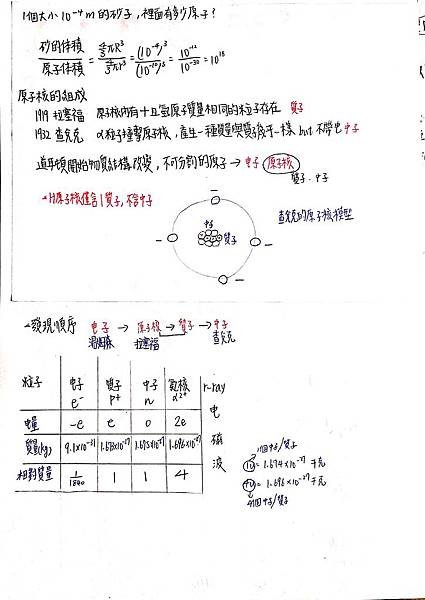 1個大小10⁻⁴m的砂子,裡面有多少原子?
砂的体積/原子体積 = 4/3πR³/4/3πr³ = (10⁻⁴)³/(10⁻¹⁰)³ = 10⁻¹²/10⁻³⁰ = 10¹⁸
原子核的組成
1919 拉塞福 原子核內有十且氫原子質量相同的粒子存在 質子
1932 查克克 α粒子撞擊原子核,產生一種質量與質子幾乎一樣 but 不帶电 中子
道耳頓開始物質結構改變,不可分割的原子→电子 原子核
質子.中子
→H原子核僅含1質子,不含中子
中子
質子
查克的原子核模型
→發現順序 电子→原子核→質子→中子
湯姆森 拉塞福 查克
粒子 电子 e⁻ 質子 P⁺ 中子 n 氦核 α²⁺ r-ray 电磁波
电量 -e e 0 2e
質量(kg) 9.1×10⁻³¹ 1.673×10⁻²⁷ 1.675×10⁻²⁷ 1.696×10⁻²⁷
相對質量 1/1840 1 1 4
1個中子/質子
1u = 1.674×10⁻²⁷ 千克
4u = 1.696×10⁻²⁷ 千克
4個中子/質子